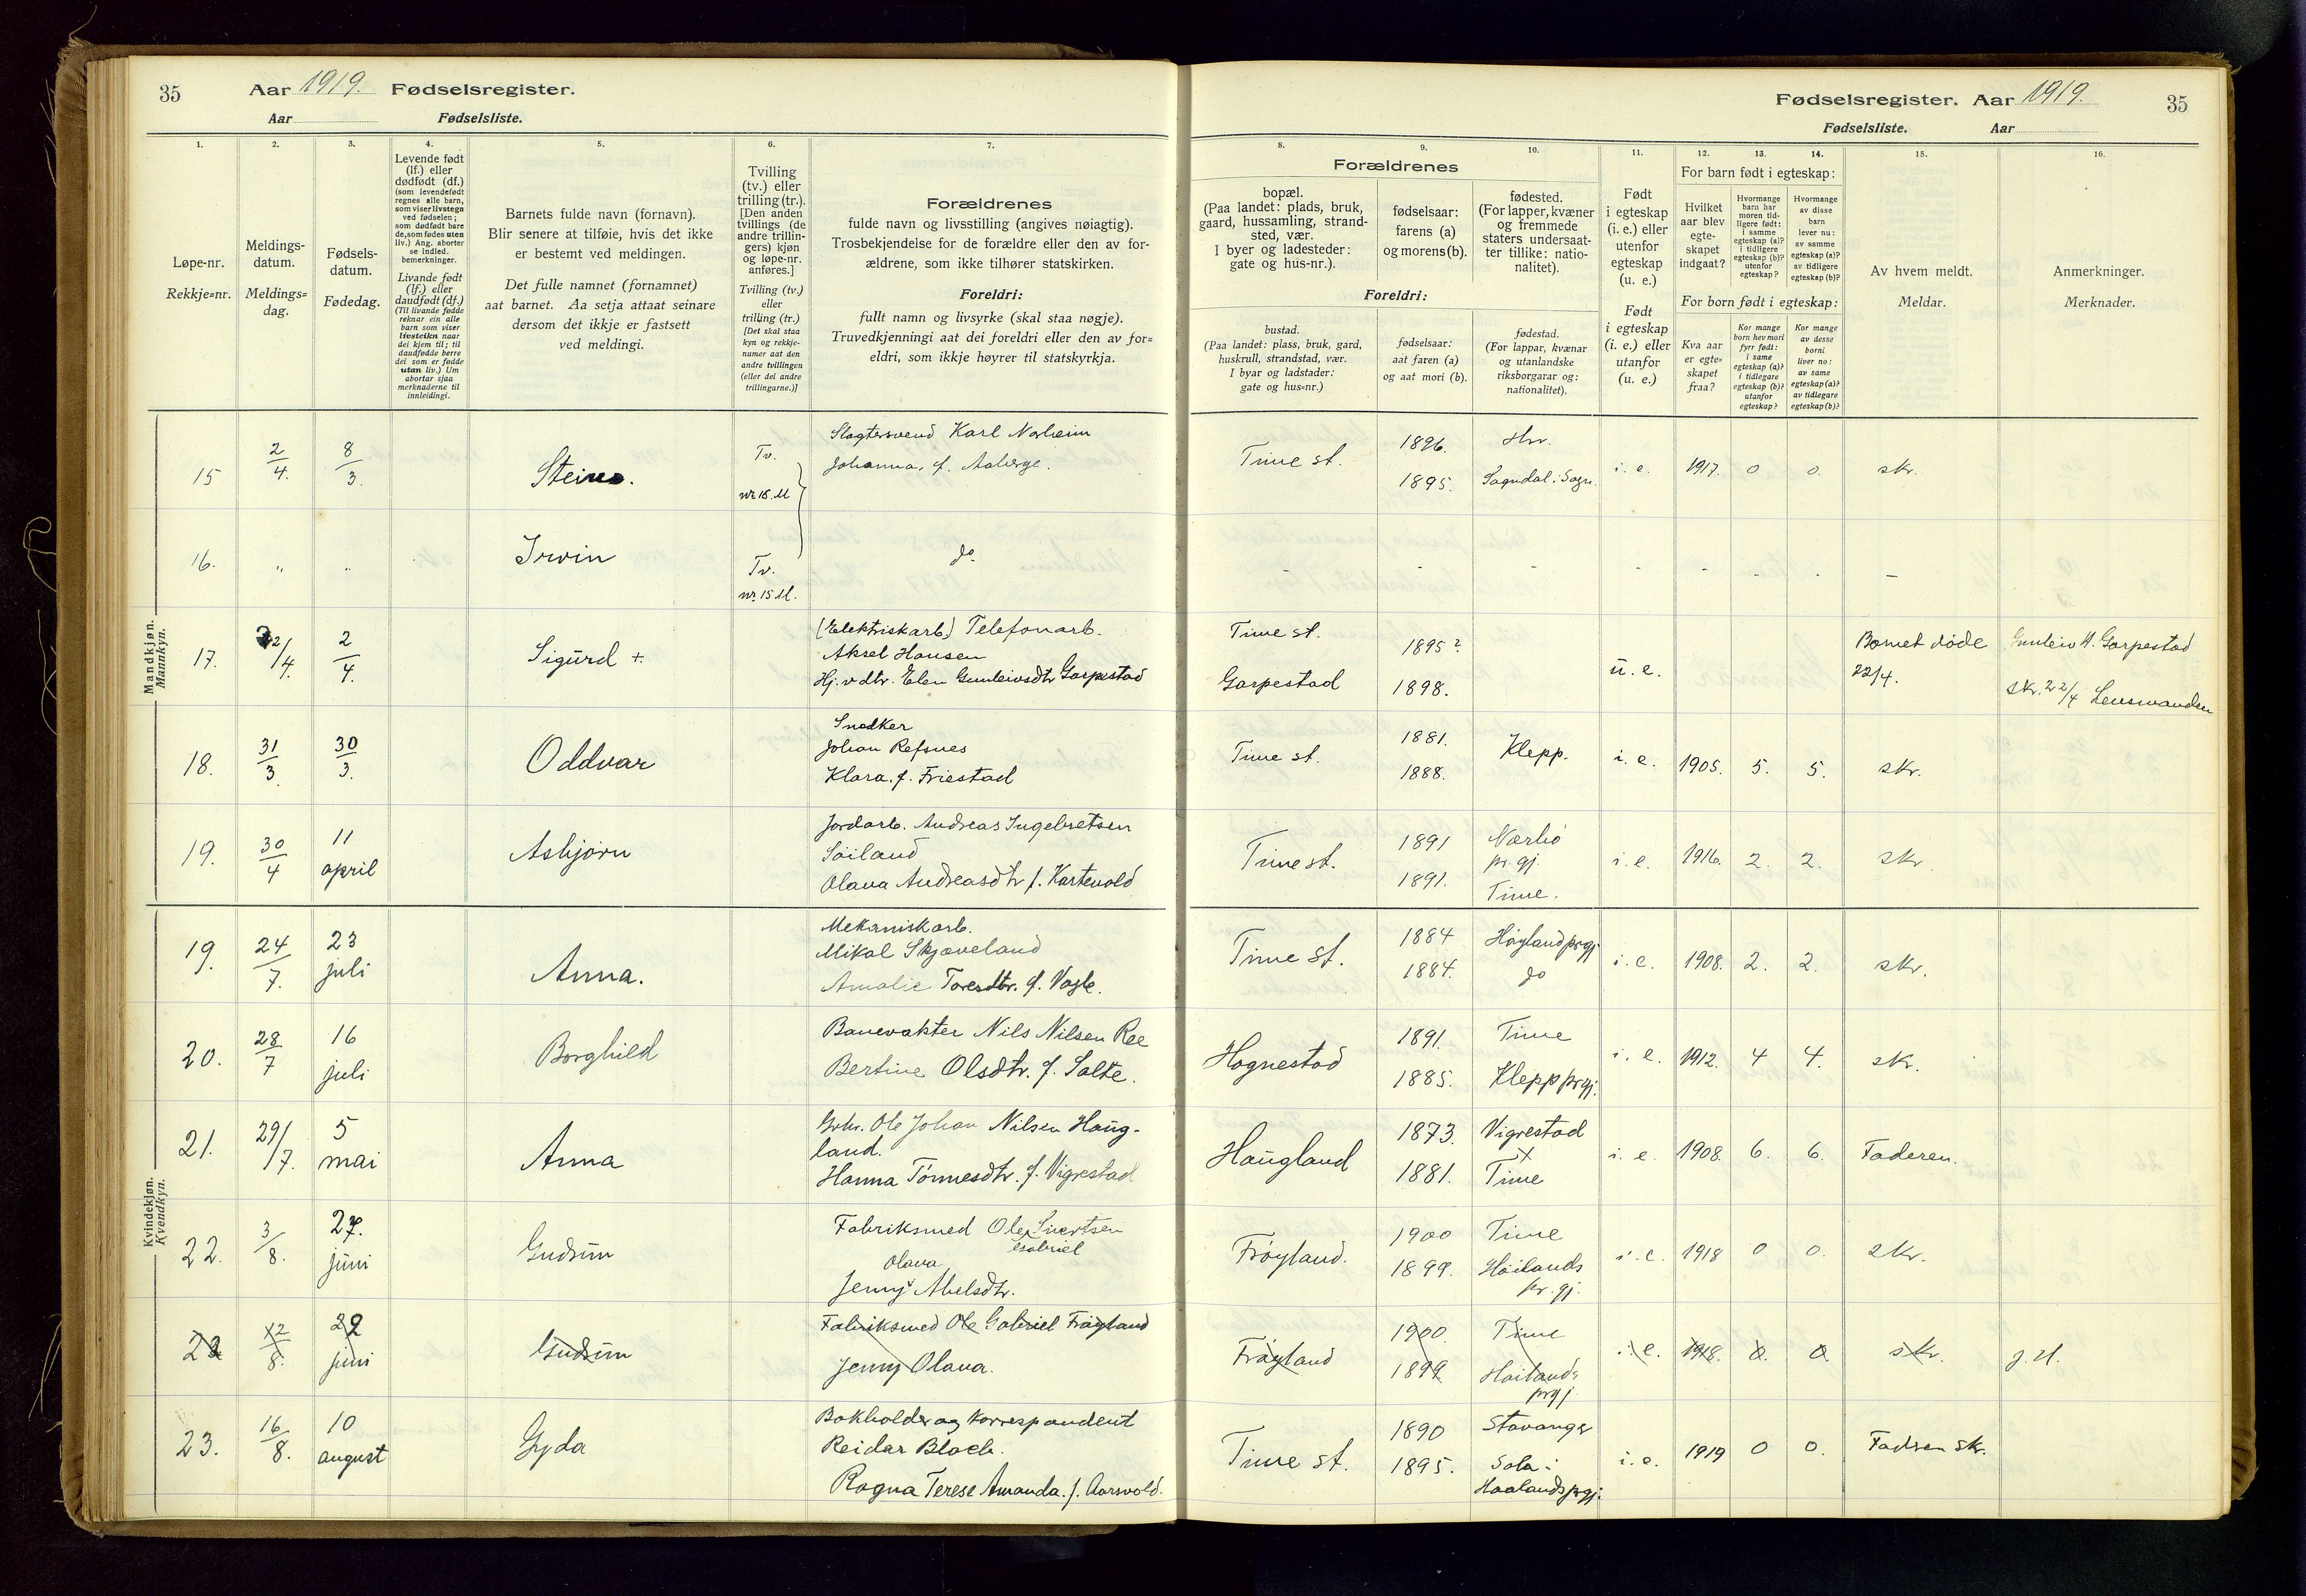 35 Aar 1919. Fødselsregister.
Aar Fødselsliste.
Fødselsregister. Aar 1919. 35
Fødselsliste. Aar
1. 2. 3. 4. 5. 6. 7.
Løpe-nr.
Rekkje=nr.
Meldings-
datum.
Meldings=
dag.
Fødsels-
datum.
Fødedag.
Levende født
(lf.) eller
dødfødt (df.)
(som levendefødt
regnes alle barn,
som viser livstegn
ved fødselen;
som dødfødt bare
de, som fødes uten
liv.) Ang. aborter
se indled.
bemerkninger.
Livande født
(lf.) eller
daudfødt (df.)
(Til livande fødde
reknar ein alle
barn som viser
livsteikn naar
dei kjem til; til
daudfødde berre
dei som er fødde
utan liv.) Um
abortar sjaa
merknaderne til
innleidingi.
Barnets fulde navn (fornavn).
Blir senere at tilføie, hvis det ikke
er bestemt ved meldingen.
Det fulle namnet (fornamnet)
aat barnet. Aa setja attaat seinare
dersom det ikkje er fastsett
ved meldingi.
Tvilling
(tv.) eller
trilling (tr.).
[Den anden
tvillings (de
andre trillin-
gers) kjøn
og løpe-nr.
anføres.]
Tvilling (tv.)
eller
trilling (tr.)
[Det skal staa
kyn og rekkje-
numer aat den
andre tvillingen
(eller dei andre
trillingarne.)]
Forældrenes
fulde navn og livsstilling (angives nøiagtig).
Trosbekjendelse for de forældre eller den av for-
ældrene, som ikke tilhører statskirken.
Foreldri:
fullt namn og livsyrke (skal staa nøgje).
Truvedkjenningi aat dei foreldri eller den av for=
eldri, som ikkje høyrer til statskyrkja.
8. 9. 10. 11. 12. 13. 14. 15. 16.
Forældrenes
bopæl.
(Paa landet: plads, bruk,
gaard, hussamling, strand-
sted, vær.
I byer og ladesteder:
gate og hus-nr.).
fødselsaar:
farens (a)
og morens (b).
fødested.
(For lapper, kvæner
og fremmede
staters undersaat-
ter tillike: natio-
nalitet).
Foreldri:
bustad.
(Paa landet: plass, bruk, gard,
huskrull, strandstad, vær.
I byar og ladstader:
gate og hus=nr.)
fødselsaar:
aat faren (a)
og aat mori (b).
fødestad.
(For lappar, kvænar
og utanlandske
riksborgarar og:
nationalitet).
Født
i egteskap
(i. e.) eller
utenfor
egteskap
(u. e.)
Født
i egteskap
(i. e.) eller
utanfor
(u. e.)
For barn født i egteskap:
Hvilket
aar blev
egte-
skapet
indgaat?
Hvormange
barn har
moren tid-
ligere født:
i samme
egteskap (a)?
i tidligere
egteskap (b)?
utenfor
egteskap?
Hvormange
av disse
barn
lever nu:
av samme
egteskap (a)?
av tidligere
egteskap (b)?
For born født i egteskap:
Kva aar
er egte=
skapet
fraa?
Kor mange
born hev mori
fyrr født:
i same
egteskap (a)?
i tidlegare
egteskap (b)?
utanfor
egteskap?
Kor mange
av desse
borni
liver no:
av same
egteskap (a)?
av tidlegare
egteskap (b)?
Av hvem meldt.
Meldar.
Anmerkninger.
Merknader.
Mandkjøn.
Mannkyn.
15 2/4. 8/3. Steino. Tv. nr 16. M
Slagtersvend Karl Norheim
Johanna, f. Aaberge.
Time st. 1896. 1895. Hrr. Sogndal i Sogn. i. e. 1917. 0 0. skr.
16. " " Irvin Tv. nr. 15 M. do
17. 22/4. 2/4. Sigurd +
(Elektriskarb.) Telefonarb.
Aksel Hansen
Hj. v. dtr. Elen Gunleivsdtr Garpestad
Time st. Garpestad 1895? 1898. u. e. Barnet døde 22/4. Gunleiv H. Garpestad skr. 22/4 Lensmanden
18. 31/3 30/3. Oddvar
Snedker
Johan Refsnes
Klara. f. Friestad
Time st. 1881. 1888. Klepp. i. e. 1905. 5. 5. skr.
19. 30/4 11 april Asbjørn
Jordarb. Andreas Ingebretsen
Söiland
Olava Andreasdtr f. Kartevold
Time st. 1891 1891. Nærbö pr. gj. Time. i. e. 1916. 2. 2. skr
Kvindekjøn.
Kvendkyn.
19. 24/7. 23 juli Anna.
Mekaniskarb.
Mikal Skjæveland
Amalie Toresdtr. f. Vagle.
Time st. 1884 1884. Høyland prgj. do i. e. 1908. 2. 2. skr.
20. 28/7 16 juli Borghild
Banevakter Nils Nilsen Ree
Bertine Olsdtr. f. Salte.
Hognestad 1891. 1885. Time Klepp prgj. i. e. 1912. 4 4. skr.
21. 29/7. 5 mai Anna
Grbr. Ole Johan Nilsen Haug-
land.
Hanna Tönnesdtr. f. Vigrestad
Haugland 1873. 1881. Vigrestad x Time i. e. 1908. 6. 6. Faderen.
22. 3/8. 27. juni Gudrun
Fabriksmed Ole Sivertsen
Gabriel
Olava
Jenny Abelsdtr.
Frøyland. 1900 1899. Time Höilands pr. gj. i. e. 1918 0 0. skr.
23 12/8. 22 juni Gudrun
Fabriksmed Ole Gabriel Frøyland
Jenny Olava.
Frøyland 1900. 1899 Time Höilands prgj i. e. 1918. 0. 0. skr.
23. 16/8. 10 august Gyda
Bokholder og korrespondent
Reidar Bloch.
Ragna Terese Amanda. f. Aarsvold.
Time st. 1890 1895. Stavanger Sola i Haalands prgj. i. e. 1919 0 0. Fadren skr.